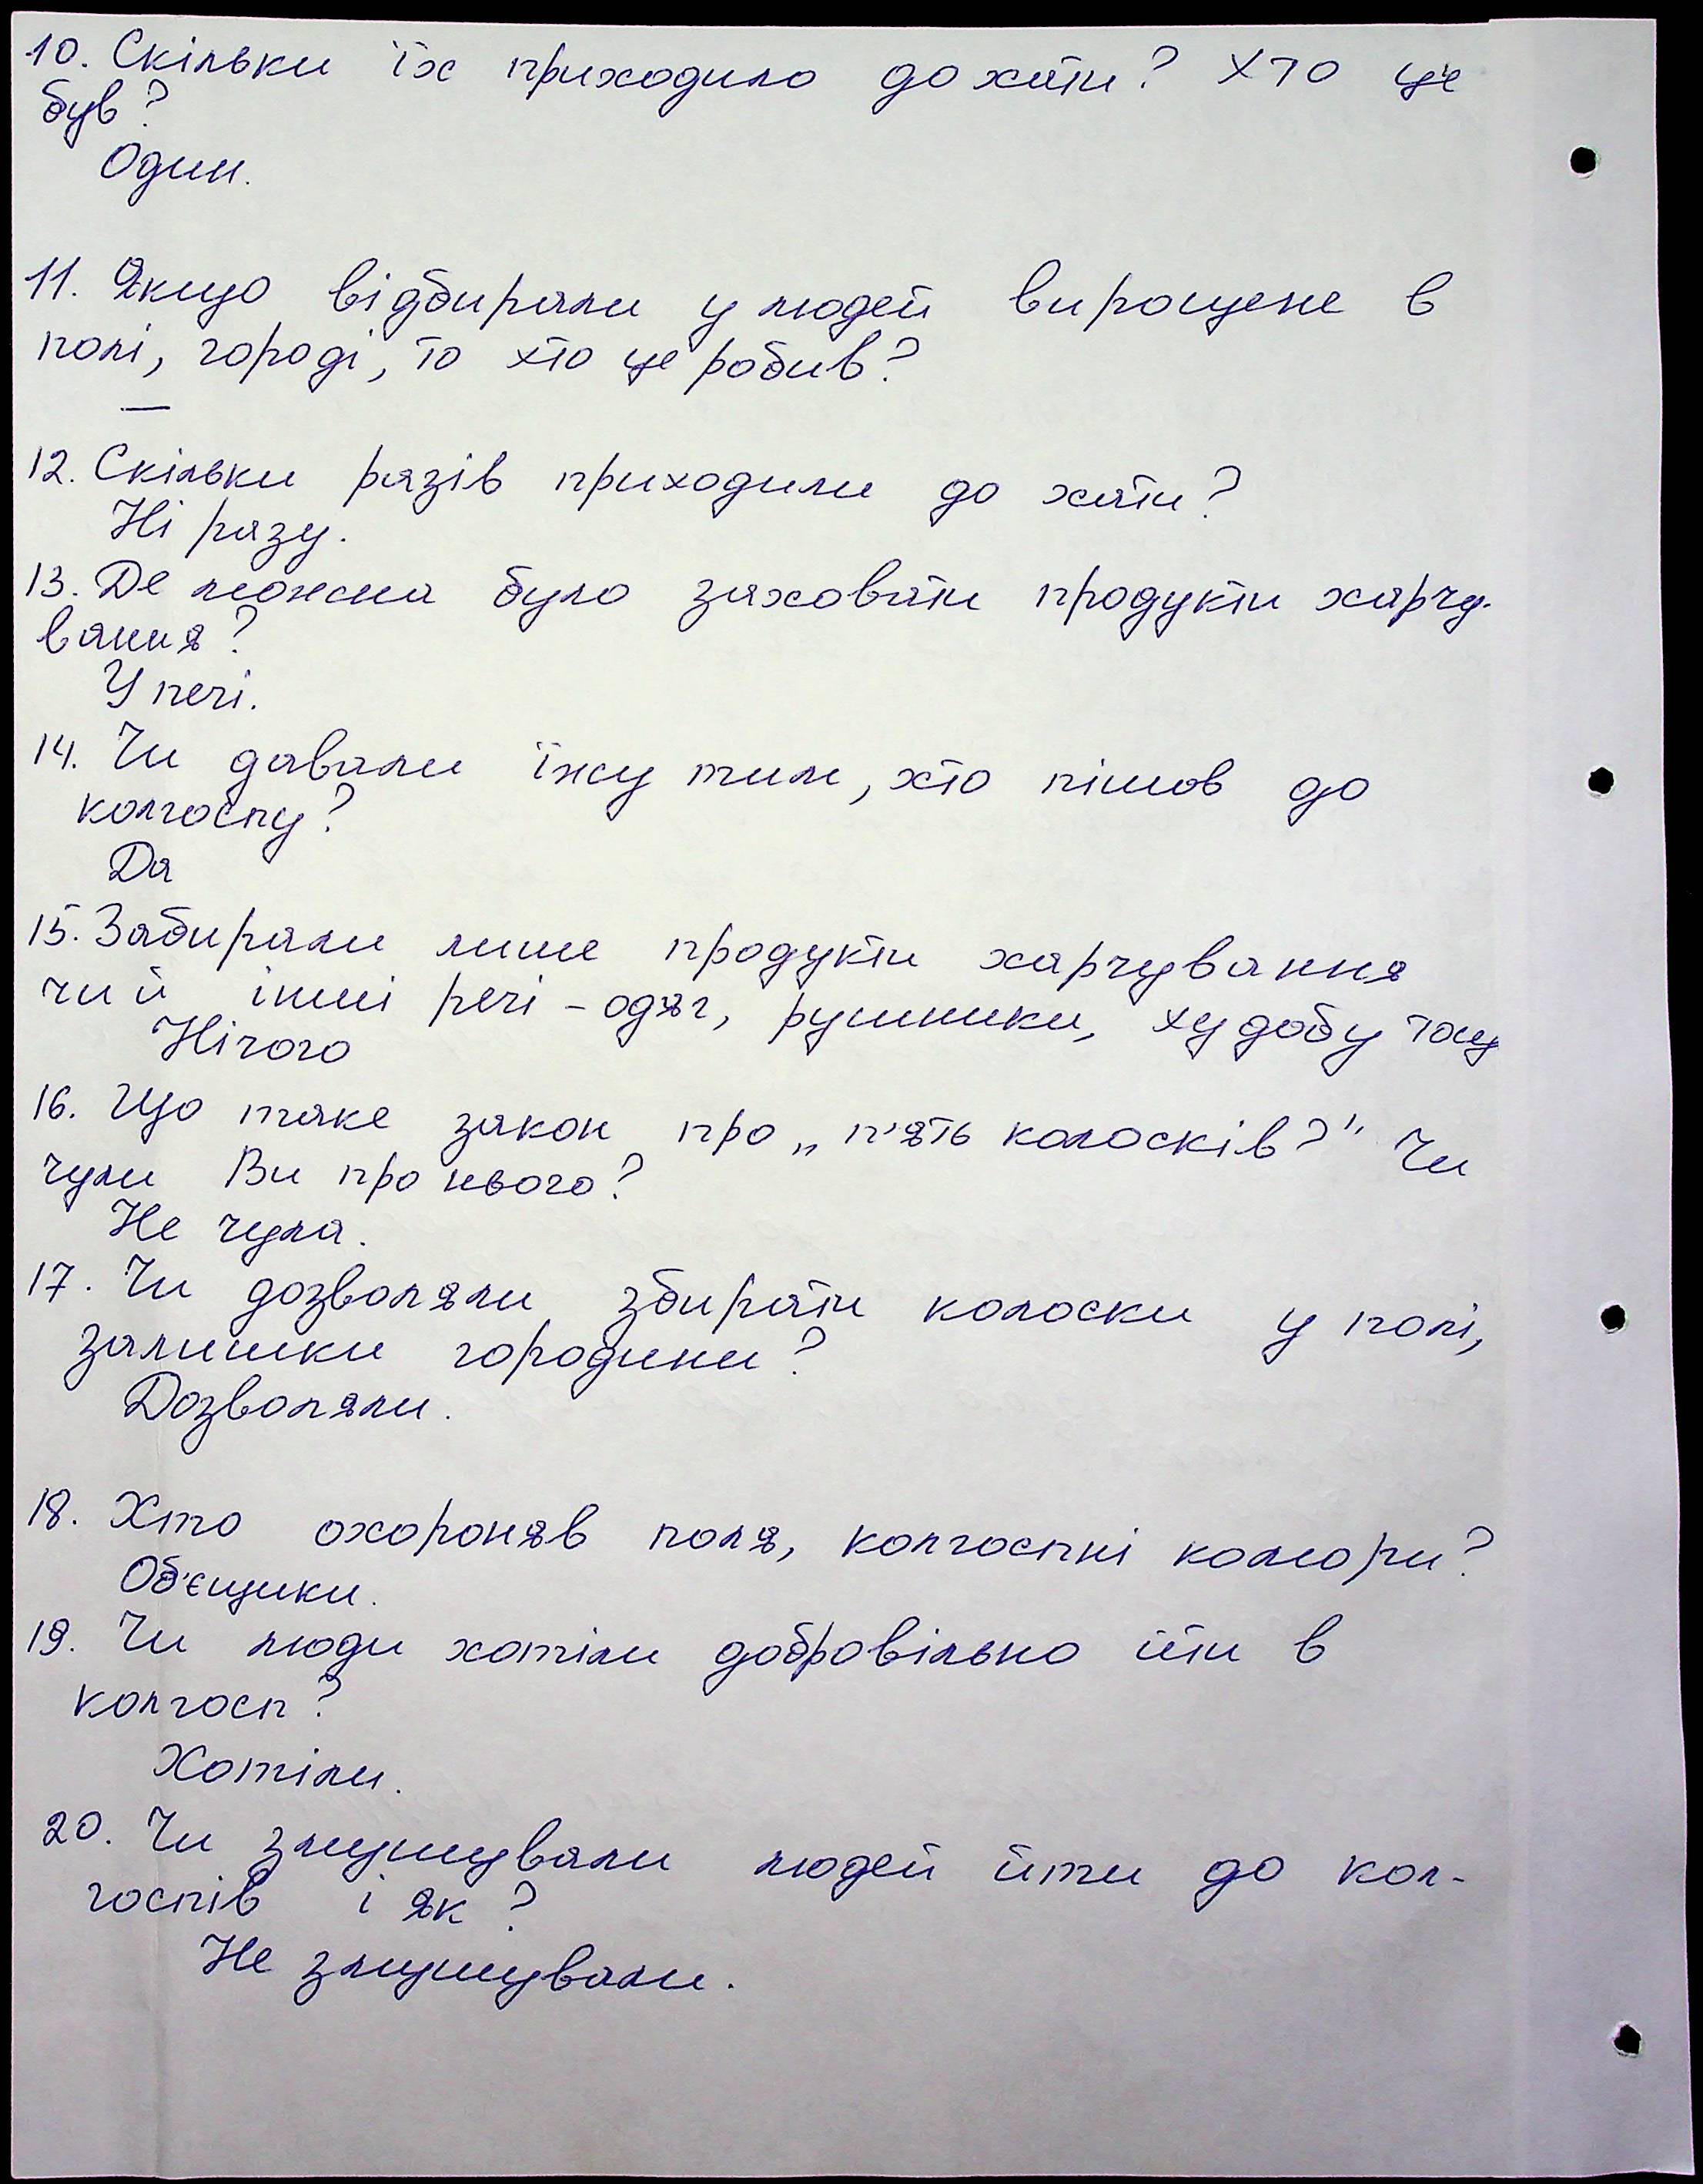 10. Скільки їх приходило до хати? Хто це
був?
Один.
11. Якщо відбирали у людей вирощене в
полі, городі, то хто це робив?
—
12. Скільки разів приходили до хати?
Ні разу.
13. Де можна було заховати продукти харчу-
вання?
У печі.
14. Чи давали їжу тим, хто пішов до
колгоспу?
Да
15. Забирали лише продукти харчування
чи й інші речі - одяг, рушники, худобу тощ
Нічого
16. Що таке закон про „п'ять колосків?" Чи
чули Ви про нього?
Не чула.
17. Чи дозволяли збирати колоски у полі,
залишки городини?
Дозволяли.
18. Хто охороняв поля, колгоспні комори?
Об'єщики.
19. Чи люди хотіли добровільно йти в
колгосп?
Хотіли.
20. Чи змушували людей йти до кол-
госпів і як?
Не змушували.